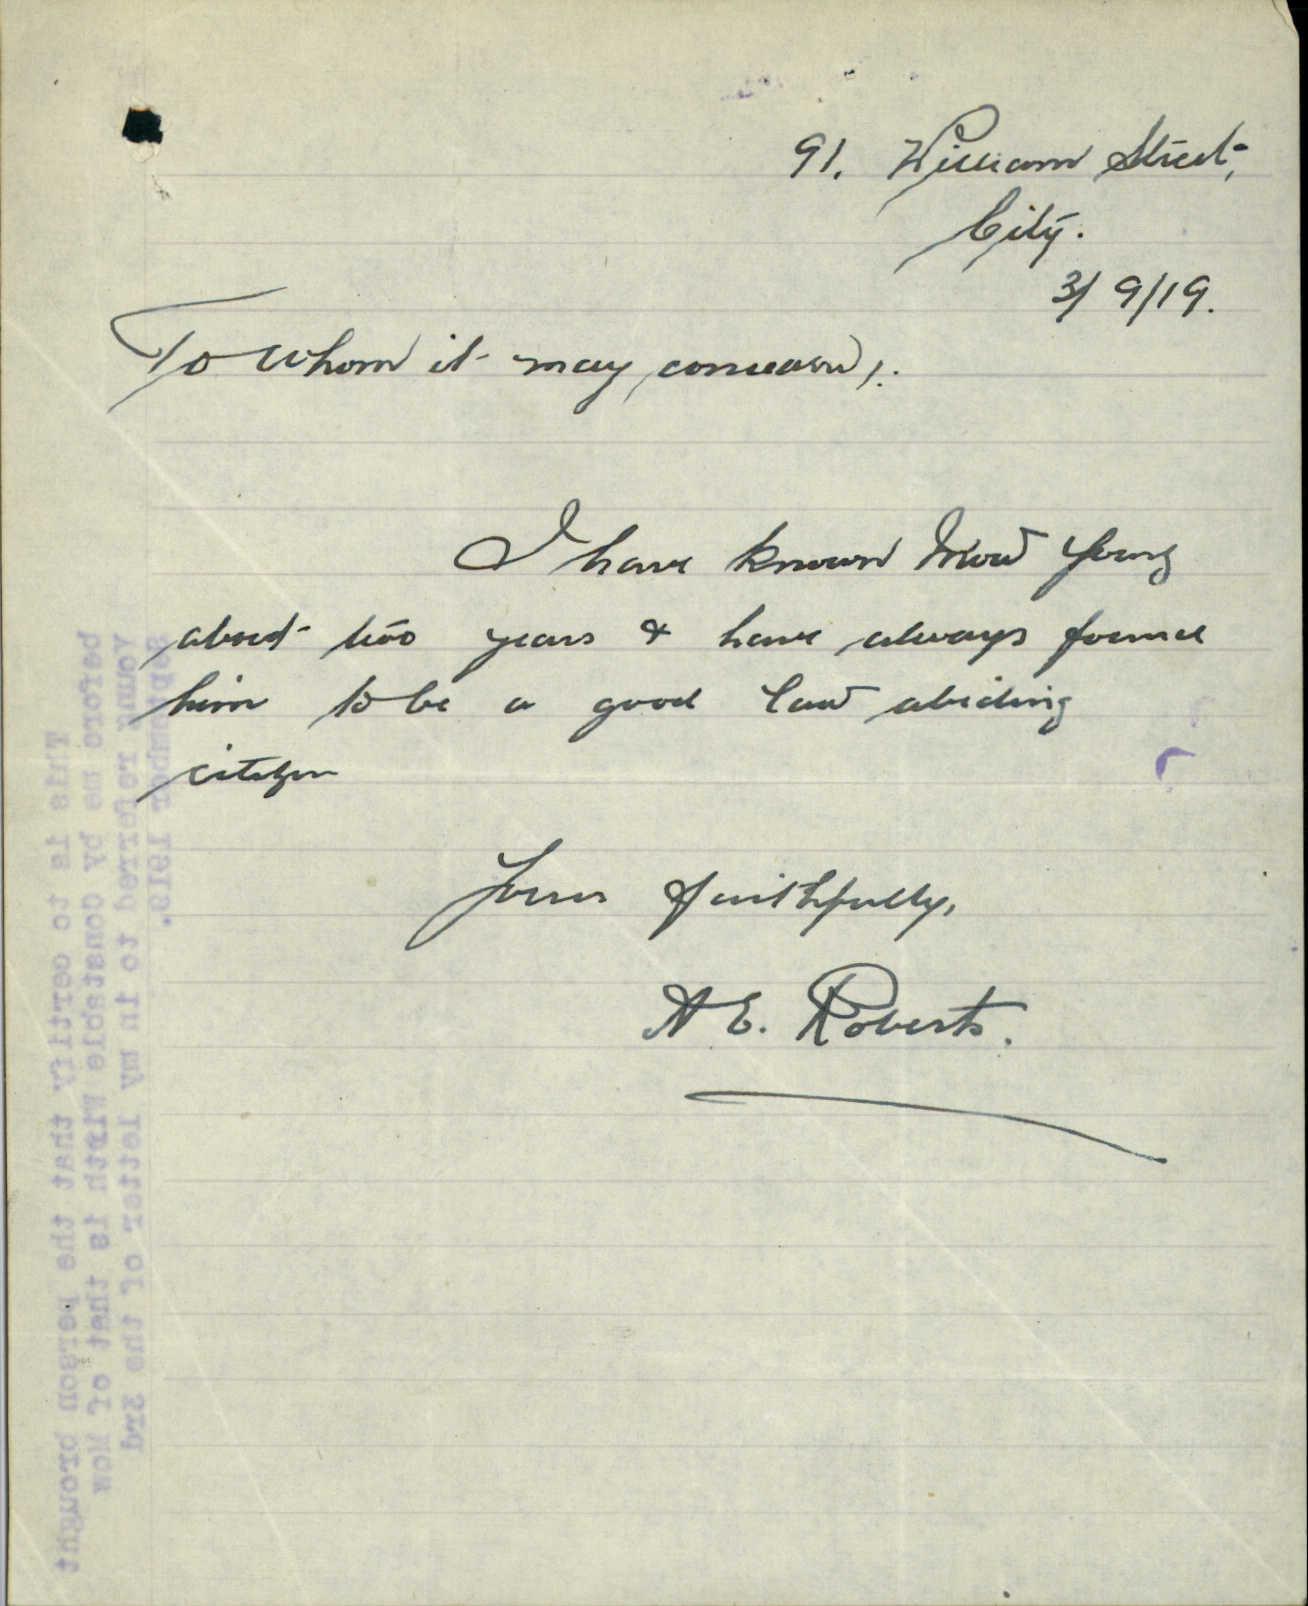 91, William Street,
City.
3/9/19.
To whom it may concern,:
I have known Mow Young
about two years & have always found
him to be a good law abiding
citizen
Yours faithfully,
A E. Roberts.
This is to certify that the person brought
before me by Constable Wirth is that of Mow
Young referred to in my letter of the 3rd
September 1919.